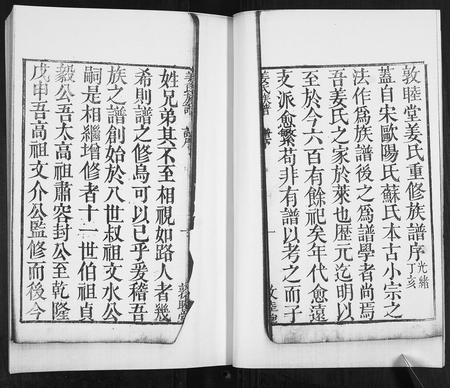 敦睦堂姜氏重修族譜序 光緒丁亥
蓋自宋歐陽氏蘇氏本古小宗之
法作爲族譜後之爲譜學者尚焉
吾姜氏之家於萊也歷元迄明以
至於今六百有餘祀矣年代愈遠
支派愈繁苟非有譜以考之而子
姜氏族譜
姜氏族譜
姓兄弟其不至相視如路人者幾
希則譜之修烏可以已乎爰稽吾
族之譜創始於八世叔祖文水公
嗣是相繼增修者十一世伯祖貞
毅公吾太高祖肅容封公至乾隆
戊申吾高祖文介公監修而後今
敦睦堂